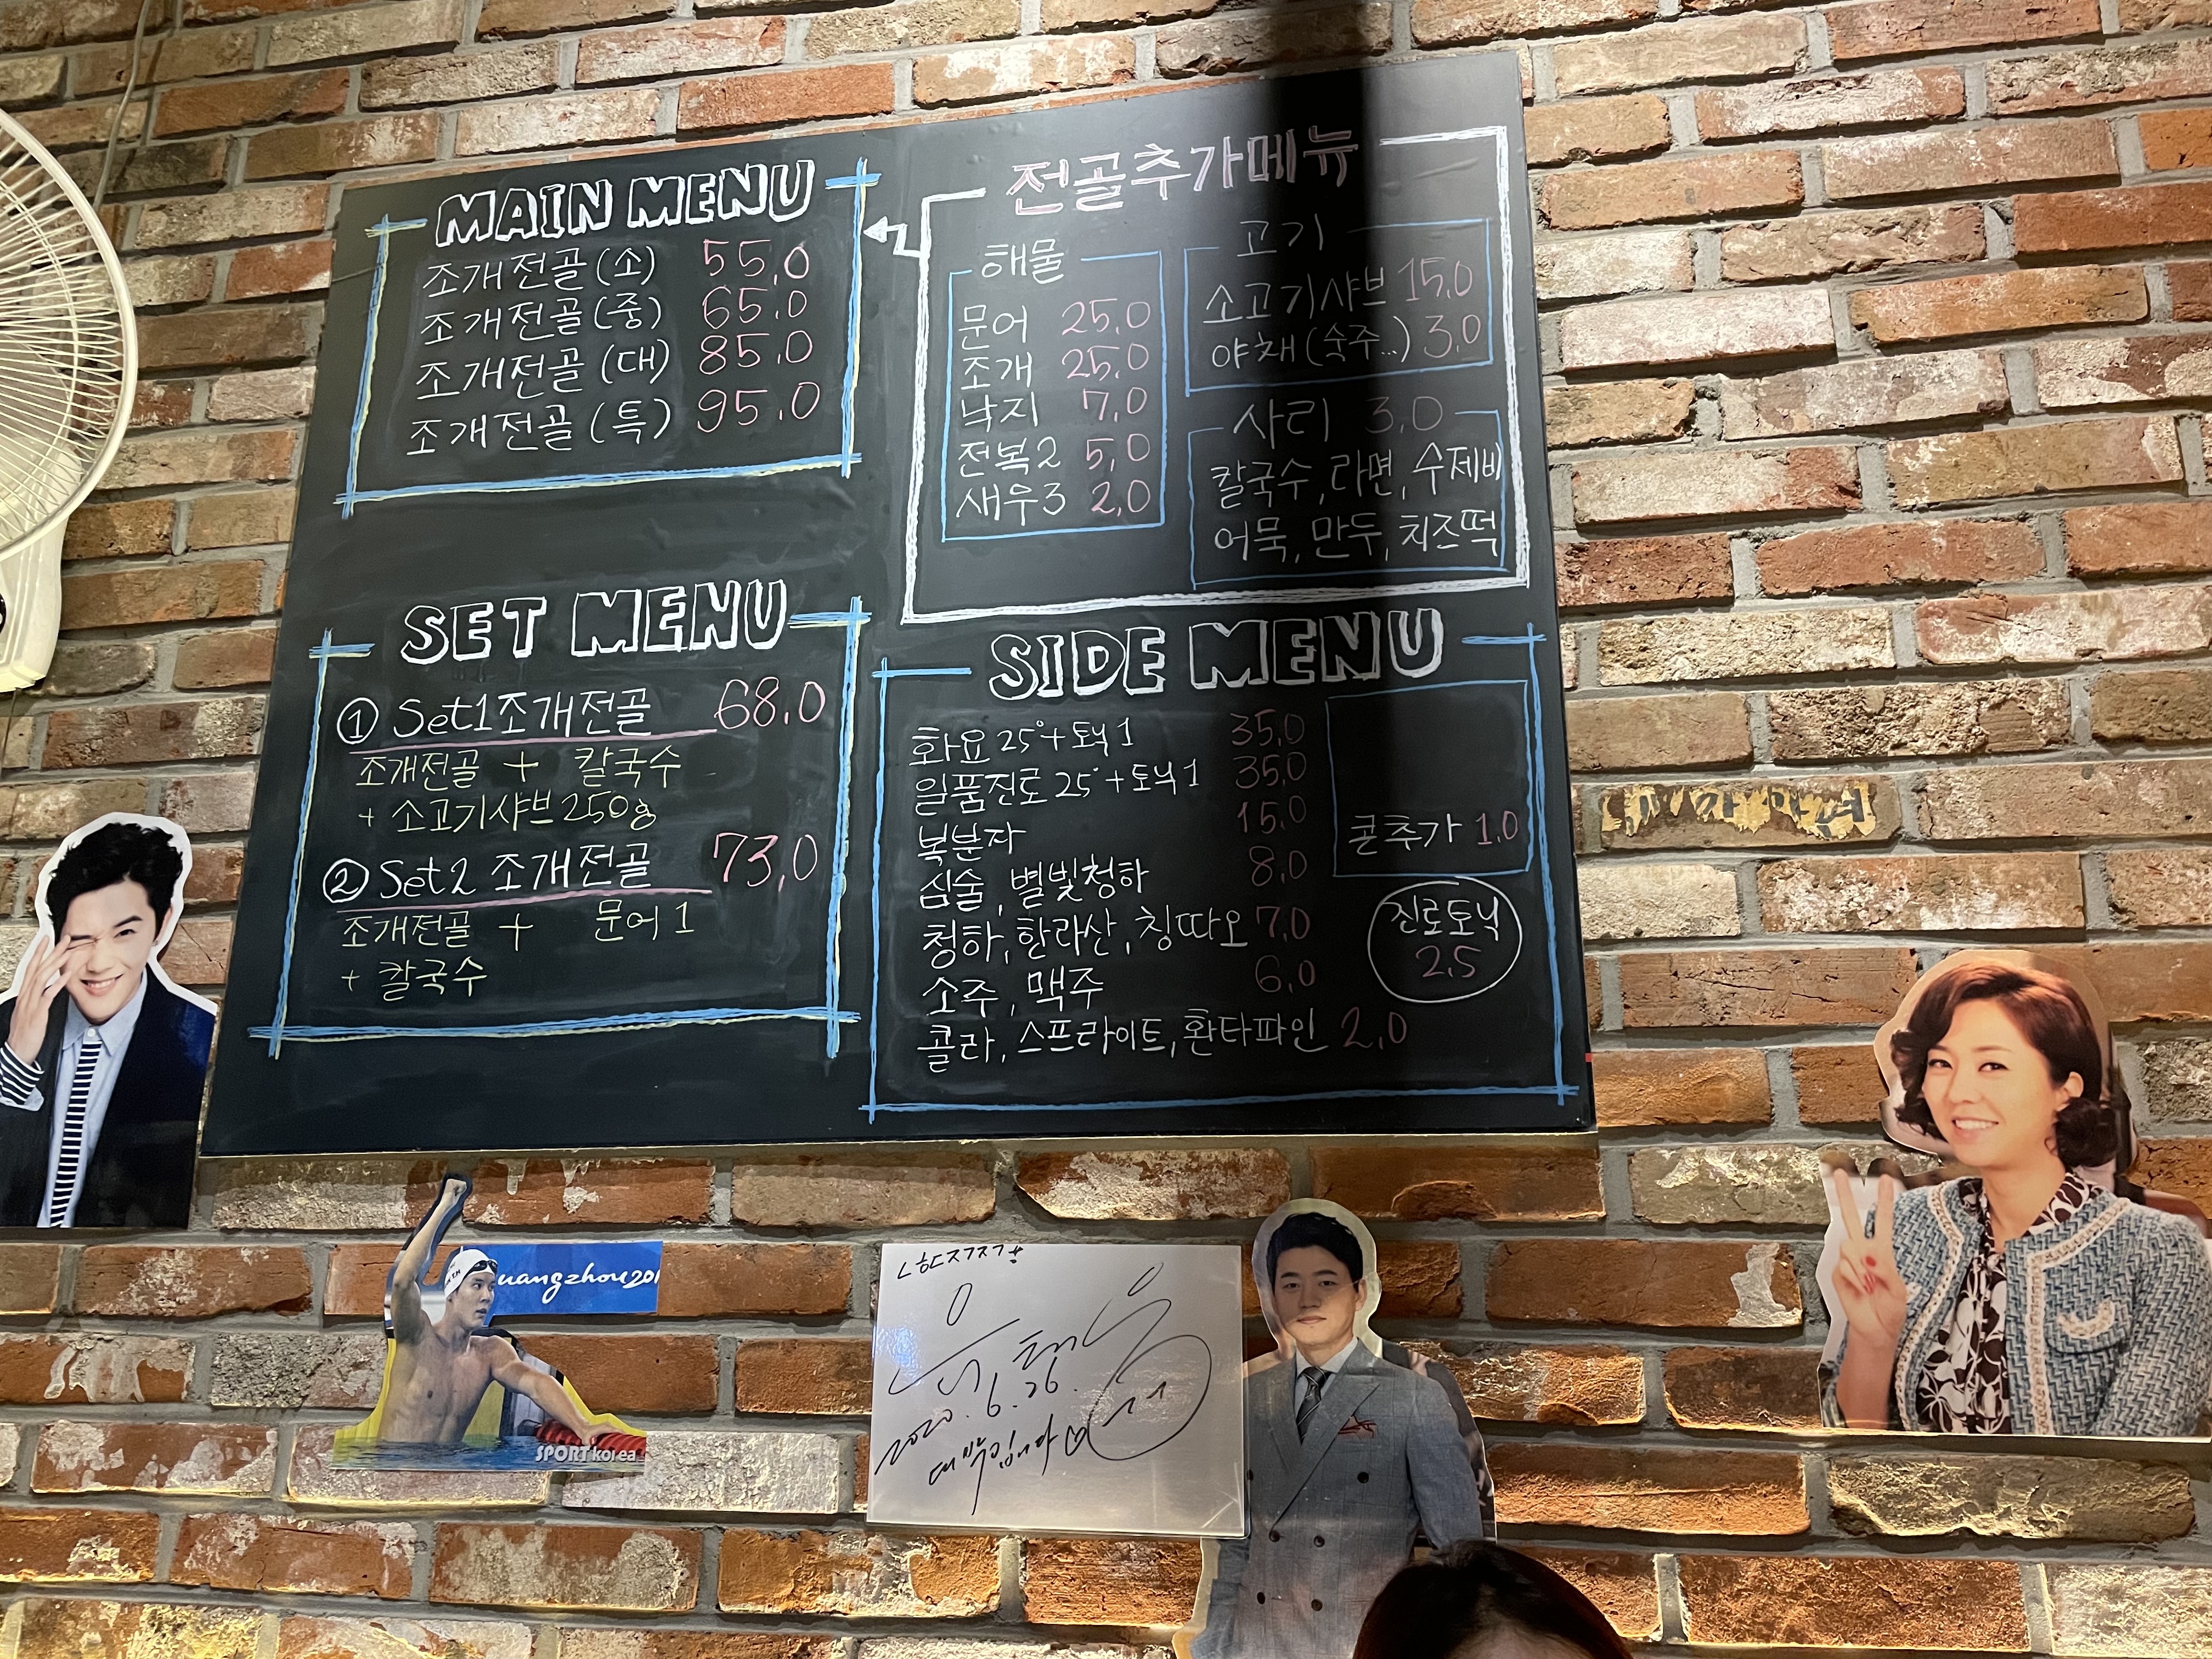 MAIN MENU
조개전골 (소) 55,0
조개전골 (중) 65,0
조개전골 (대) 85,0
조개전골 (특) 95,0
전골추가메뉴
해물
문어 25,0
조개 25,0
낙지 7,0
전복2 5,0
새우3 2,0
고기
소고기샤브 15,0
야채(숙주..) 3,0
사리 3,0
칼국수, 라면, 수제비
어묵, 만두, 치즈떡
SET MENU
① Set1 조개전골 68,0
조개전골 + 칼국수
+ 소고기샤브 250g
② Set2 조개전골 73,0
조개전골 + 문어 1
+ 칼국수
SIDE MENU
화요 25° + 토닉 1 35,0
일품진로 25° + 토닉 1 35,0
복분자 15,0
심술, 별빛청하 8,0
청하, 한라산, 칭따오 7,0
소주, 맥주 6,0
콜라, 스프라이트, 환타파인 2,0
콘추가 1,0
진로토닉
2,5
uangzhou201
SPORTkorea
2020. 6. 26.
대박입니다♡